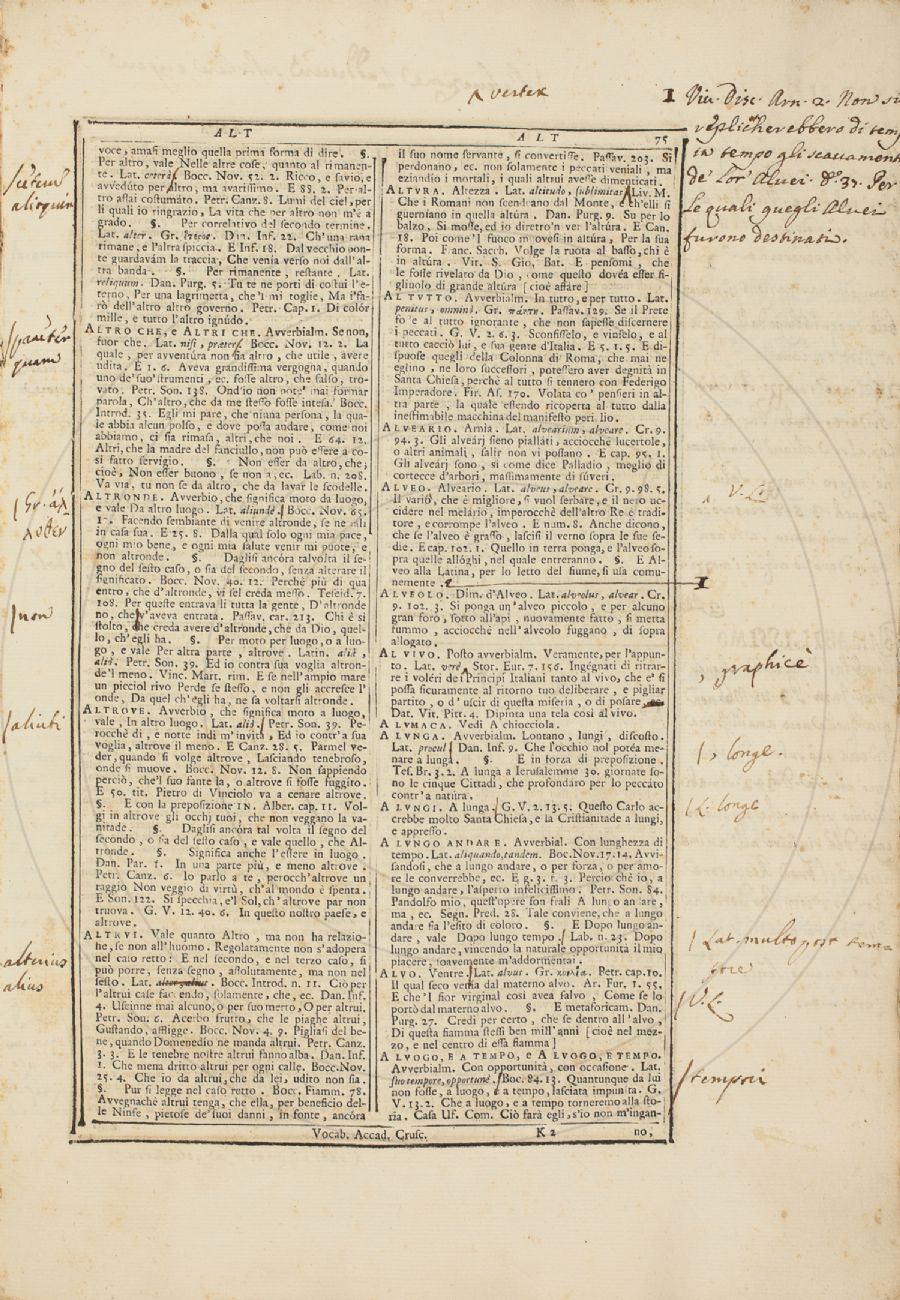 vertex
1 Viv. Disc. Arn. 2. Non si
replicherebbero di temp
in tempo gli scavamenti
de Lor' Alvei. &c. 37. Per
Le quali quegli Alvei
furono destinati.
ALT
ALT 75
voce, amasi meglio quella prima forma di dire. §.
Per altro, vale Nelle altre cose, quanto al rimanen-
te. Lat. ceterà Bocc. Nov. 52. 2. Ricco, e savio, e
avveduto per altro, ma avarissimo. E 88. 2. Per al-
tro assai costumáto. Petr. Canz. 8. Lumi del ciel, per
li quali io ringrazio, La vita che per altro non m'è a
grado. §. Per correlativo del secondo termine.
Lat. alter. Gr. ἕτερος. Din. Inf. 22. Ch'una rana
rimane, e l'altra spiccia. E Inf. 18. Dal vecchio pon-
te guardavám la traccia, Che venía verso noi dall'al-
tra banda. §. Per rimanente, restante. Lat.
reliquum. Dan. Purg. 5. Tu te ne porti di costui l'e-
terno, Per una lagrimetta, che'l mi toglie, Ma i' fa-
rò dell'altro altro governo. Petr. Cap. 1. Di colór
mille, e tutto l'altro ignúdo.
ALTRO CHE, e ALTRI CHE. Avverbialm. Se non,
fuor che. Lat. nisi, præter. Bocc. Nov. 12. 2. La
quale, per avventúra non sia altro, che utile, avere
udita. E 1. 6. Aveva grandissima vergogna, quando
uno de' suo' strumenti, ec. fosse altro, che falso, tro-
vato. Petr. Son. 138. Ond'io non pote' mai formar
parola, Ch'altro, che da me stesso fosse intesa. Bocc.
Introd. 35. Egli mi pare, che niana persona, la qua-
le abbia alcun polso, e dove possa andare, come noi
abbiamo, ci sia rimasa, altri, che noi. E 64. 12.
Altri, che la madre del fanciullo, non può essere a co-
si fatto servigio. §. Non esser da altro, che;
cioè, Non esser buono, se non a, ec. Lab. n. 208.
Va via, tu non se da altro, che da lavar le scodelle.
ALTRONDE. Avverbio, che significa moto da luogo,
e vale Da altro luogo. Lat. aliundè. Bocc. Nov. 65.
17. Facendo sembiante di venire altronde, se ne salì
in casa sua. E 25. 8. Dalla qual solo ogni mia pace,
ogni mio bene, e ogni mia salute venir mi puote, e
non altronde. §. Daglisi ancóra talvolta il se-
gno del sesto caso, o sia del secondo, senza alterare il
significato. Bocc. Nov. 40. 12. Perchè più di qua
entro, che d'altronde, vi sel creda messo. Teseid. 7.
108. Per queste entrava lì tutta la gente, D'altronde
no, che v'aveva entrata. Passav. car. 213. Chi è sì
stolto, che creda avere d'altronde, che da Dio, quel-
lo, ch'egli ha. §. Per moto per luogo, o a luo-
go, e vale Per altra parte, altrove. Latin. aliò,
aliò. Petr. Son. 39. Ed io contra sua voglia altron-
de'l meno. Vinc. Mart. rim. E se nell'ampio mare
un picciol rivo Perde se stesso, e non gli accresce l'
onde, Da quel ch'egli ha, ne sa voltarsi altronde.
ALTROVE. Avverbio, che significa moto a luogo,
vale, In altro luogo. Lat. aliò. Petr. Son. 39. Pe-
rocchè dì, e notte indi m'invita, Ed io contr'a sua
voglia, altrove il meno. E Canz. 28. 5. Parmel ve-
der, quando si volge altrove, Lasciando tenebroso,
onde si muove. Bocc. Nov. 12. 8. Non sappiendo
perciò, che'l suo fante la, o altrove si fosse fuggito.
E 50. tit. Pietro di Vinciolo va a cenare altrove.
§. E con la preposizione IN. Alber. cap. 11. Vol-
gi in altrove gli occhj tuoi, che non veggano la va-
nitade. §. Daglisi ancóra tal volta il segno del
secondo, o sia del sesto caso, e vale quello, che Al-
tronde. §. Significa anche l'essere in luogo.
Dan. Par. 1. In una parte più, e meno altrove.
Petr. Canz. 6. Io parlo a te, perocch'altrove un
raggio Non veggio di virtù, ch'al mondo è spenta.
E Son. 122. Sì specchia, e'l Sol, ch'altrove par non
truova. G. V. 12. 40. 6. In questo nostro paese, e
altrove.
ALTRUI. Vale quanto Altro, ma non ha relazio-
ne, se non all'huomo. Regolatamente non s'adopera
nel caso retto: E nel secondo, e nel terzo caso, si
può porre, senza segno, assolutamente, ma non nel
sesto. Lat. Bocc. Introd. n. 11. Ciò per
l'altrui case facendo, solamente, che, ec. Dan. Inf.
4. Uscinne mai alcuno, o per suo merto, O per altrui.
Petr. Son. 6. Acerbo frutto, che le piaghe altrui,
Gustando, affligge. Bocc. Nov. 4. 9. Pigliasi del be-
ne, quando Domenedio ne manda altrui. Petr. Canz.
3. 3. E le tenebre nostre altrui fanno alba. Dan. Inf.
1. Che mena dritto altrui per ogni calle. Bocc. Nov.
25. 4. Che io da altrui, che da lei, udito non sia.
§. Pur si legge nel caso retto. Bocc. Fiamm. 78.
Avvegnachè altrui tenga, che ella, per beneficio del-
le Ninfe, pietose de' suoi danni, in fonte, ancóra
il suo nome servante, si convertisse. Passav. 203. Si
perdonano, ec. non solamente i peccati veniali, ma
eziandio i mortali, i quali altrui avesse dimenticati.
ALTURA. Altezza. Lat. altitudo, sublimitas. Liv. M.
Che i Romani non scendeano dal Monte, e ch'elli si
guerníano in quella altúra. Dan. Purg. 9. Su per lo
balzo, Si mosse, ed io dietro'n ver l'altúra. E Can.
18. Poi come'l fuoco muovesi in altúra, Per la sua
forma. Franc. Sacch. Volge la ruota al basso, chi è
in altúra. Vit. S. Gio. Bat. E pensomi, che
le fosse rivelato da Dio, come questo dovéa esser fi-
gliuolo di grande altúra [cioè affare]
AL TUTTO. Avverbialm. In tutto, e per tutto. Lat.
penitus, omninò. Gr. πάντη. Passav. 129. Se il Prete
fo'e al tutto ignorante, che non sapesse discernere
i peccati. G. V. 2. 6. 3. Sconfisselo, e vinselo, e al
tutto cacciò lui, e sua gente d'Italia. E 5. 1. 5. E di-
spuose quegli della Colonna di Roma, che mai ne
eglino, ne loro successori, potessero aver degnità in
Santa Chiesa, perchè al tutto si tennero con Federigo
Imperadore. Fir. As. 170. Volata co' pensieri in al-
tra parte, la quale essendo ricoperta al tutto dalla
inestimabile macchina del manifesto periglio.
ALVEARIO. Arnia. Lat. alvearium, alveare. Cr. 9.
94. 3. Gli alveárj sieno piallati, acciocchè lucertole,
o altri animali, salir non vi possano. E cap. 95. 1.
Gli alveárj sono, si come dice Palladio, meglio di
cortecce d'arbori, massimamente di súveri.
ALVEO. Alveario. Lat. alveus, alveare. Cr. 9. 98. 5.
Il vario, che è migliore, si vuol serbare, e il nero uc-
cidere nel melário, imperocchè dell'altro Re è tradi-
tore, e corrompe l'alveo. E num. 8. Anche dicono,
che se l'alveo è grasso, lascisi il verno sopra le sue se-
die. E cap. 102. 1. Quello in terra ponga, e l'alveo so-
pra quelle allóghi, nel quale entreranno. §. E Al-
veo alla Latina, per lo letto del fiume, si usa comu-
nemente. 1
ALVEOLO. Dim. d'Alveo. Lat. alveolus, alvear. Cr.
9. 102. 3. Si ponga un'alveo piccolo, e per alcuno
gran foro, sotto all'api, nuovamente fatto, si metta
fummo, acciocchè nell'alveolo fuggano, di sopra
allogato.
AL VIVO. Posto avverbialm. Veramente, per l'appun-
to. Lat. verè. Stor. Eur. 7. 156. Ingégnati di ritrar-
re i voléri de' Principi Italiani tanto al vivo, che e' si
possa sicuramente al ritorno tuo deliberare, e pigliar
partito, o d'uscir di questa miseria, o di posare
Dat. Vit. Pitt. 4. Dipinta una tela così al vivo.
ALUMACA. Vedi A chiocciola.
A LUNGA. Avverbialm. Lontano, lungi, discosto.
Lat. procul. Dan. Inf. 9. Che l'occhio nol potéa me-
nare a lunga. §. E in forza di preposizione.
Tes. Br. 3. 2. A lunga a Ierusalemme 30. giornate so-
no le cinque Cittadi, che profondáro per lo peccato
contr'a natúra.
A LUNGI. A lunga. G. V. 2. 13. 5. Questo Carlo ac-
crebbe molto Santa Chiesa, e la Cristianitade a lungi,
e appresso.
A LUNGO ANDARE. Avverbial. Con lunghezza di
tempo. Lat. aliquando, tandem. Boc. Nov. 17. 14. Avvi-
sandosi, che a lungo andare, o per forza, o per amo-
re le converrebbe, ec. E g. 3. f. 3. Percioschè io, a
lungo andare, l'asperto infelicissimo. Petr. Son. 84.
Pandolfo mio, quest'opere son frali A lungo andare,
ma, ec. Segn. Pred. 28. Tale conviene, che a lungo
andare sia l'esito di coloro. §. E Dopo lungo an-
dare, vale Dopo lungo tempo. Lab. n. 23. Dopo
lungo andare, vincendo la naturale opportunità il mio
piacere, soavemente m'addormentai.
ALVO. Ventre. Lat. alvus. Gr. κοιλία. Petr. cap. 10.
Il qual seco venía dal materno alvo. Ar. Fur. 1. 55.
E che'l fior virginal così avea salvo, Come se lo
portò dal materno alvo. §. E metaforicam. Dan.
Purg. 27. Credi per certo, che se dentro all'alvo,
Di questa fiamma stessi ben mill'anni [cioè nel mez-
zo, e nel centro di essa fiamma]
A LUOGO, E A TEMPO, e A LUOGO, E TEMPO.
Avverbialm. Con opportunità, con occasione. Lat.
suo tempore, opportunè. Boc. 84. 13. Quantunque da lui
non fosse, a luogo, e a tempo, lasciata impunita. G.
V. 13. 2. Che a luogo, e a tempo torneremo alla sto-
ria. Casa Uf. Com. Ciò farà egli, s'io non m'ingan-
Vocab. Accad. Crusc. K 2 no,
alioquin
præter
quam
Gr. ἄλ
λοθεν
non
aliubi
alterius
alius
V. L.
graphicè
longe.
L. longe
Lat. multo post tem
pore
V. L.
tempori